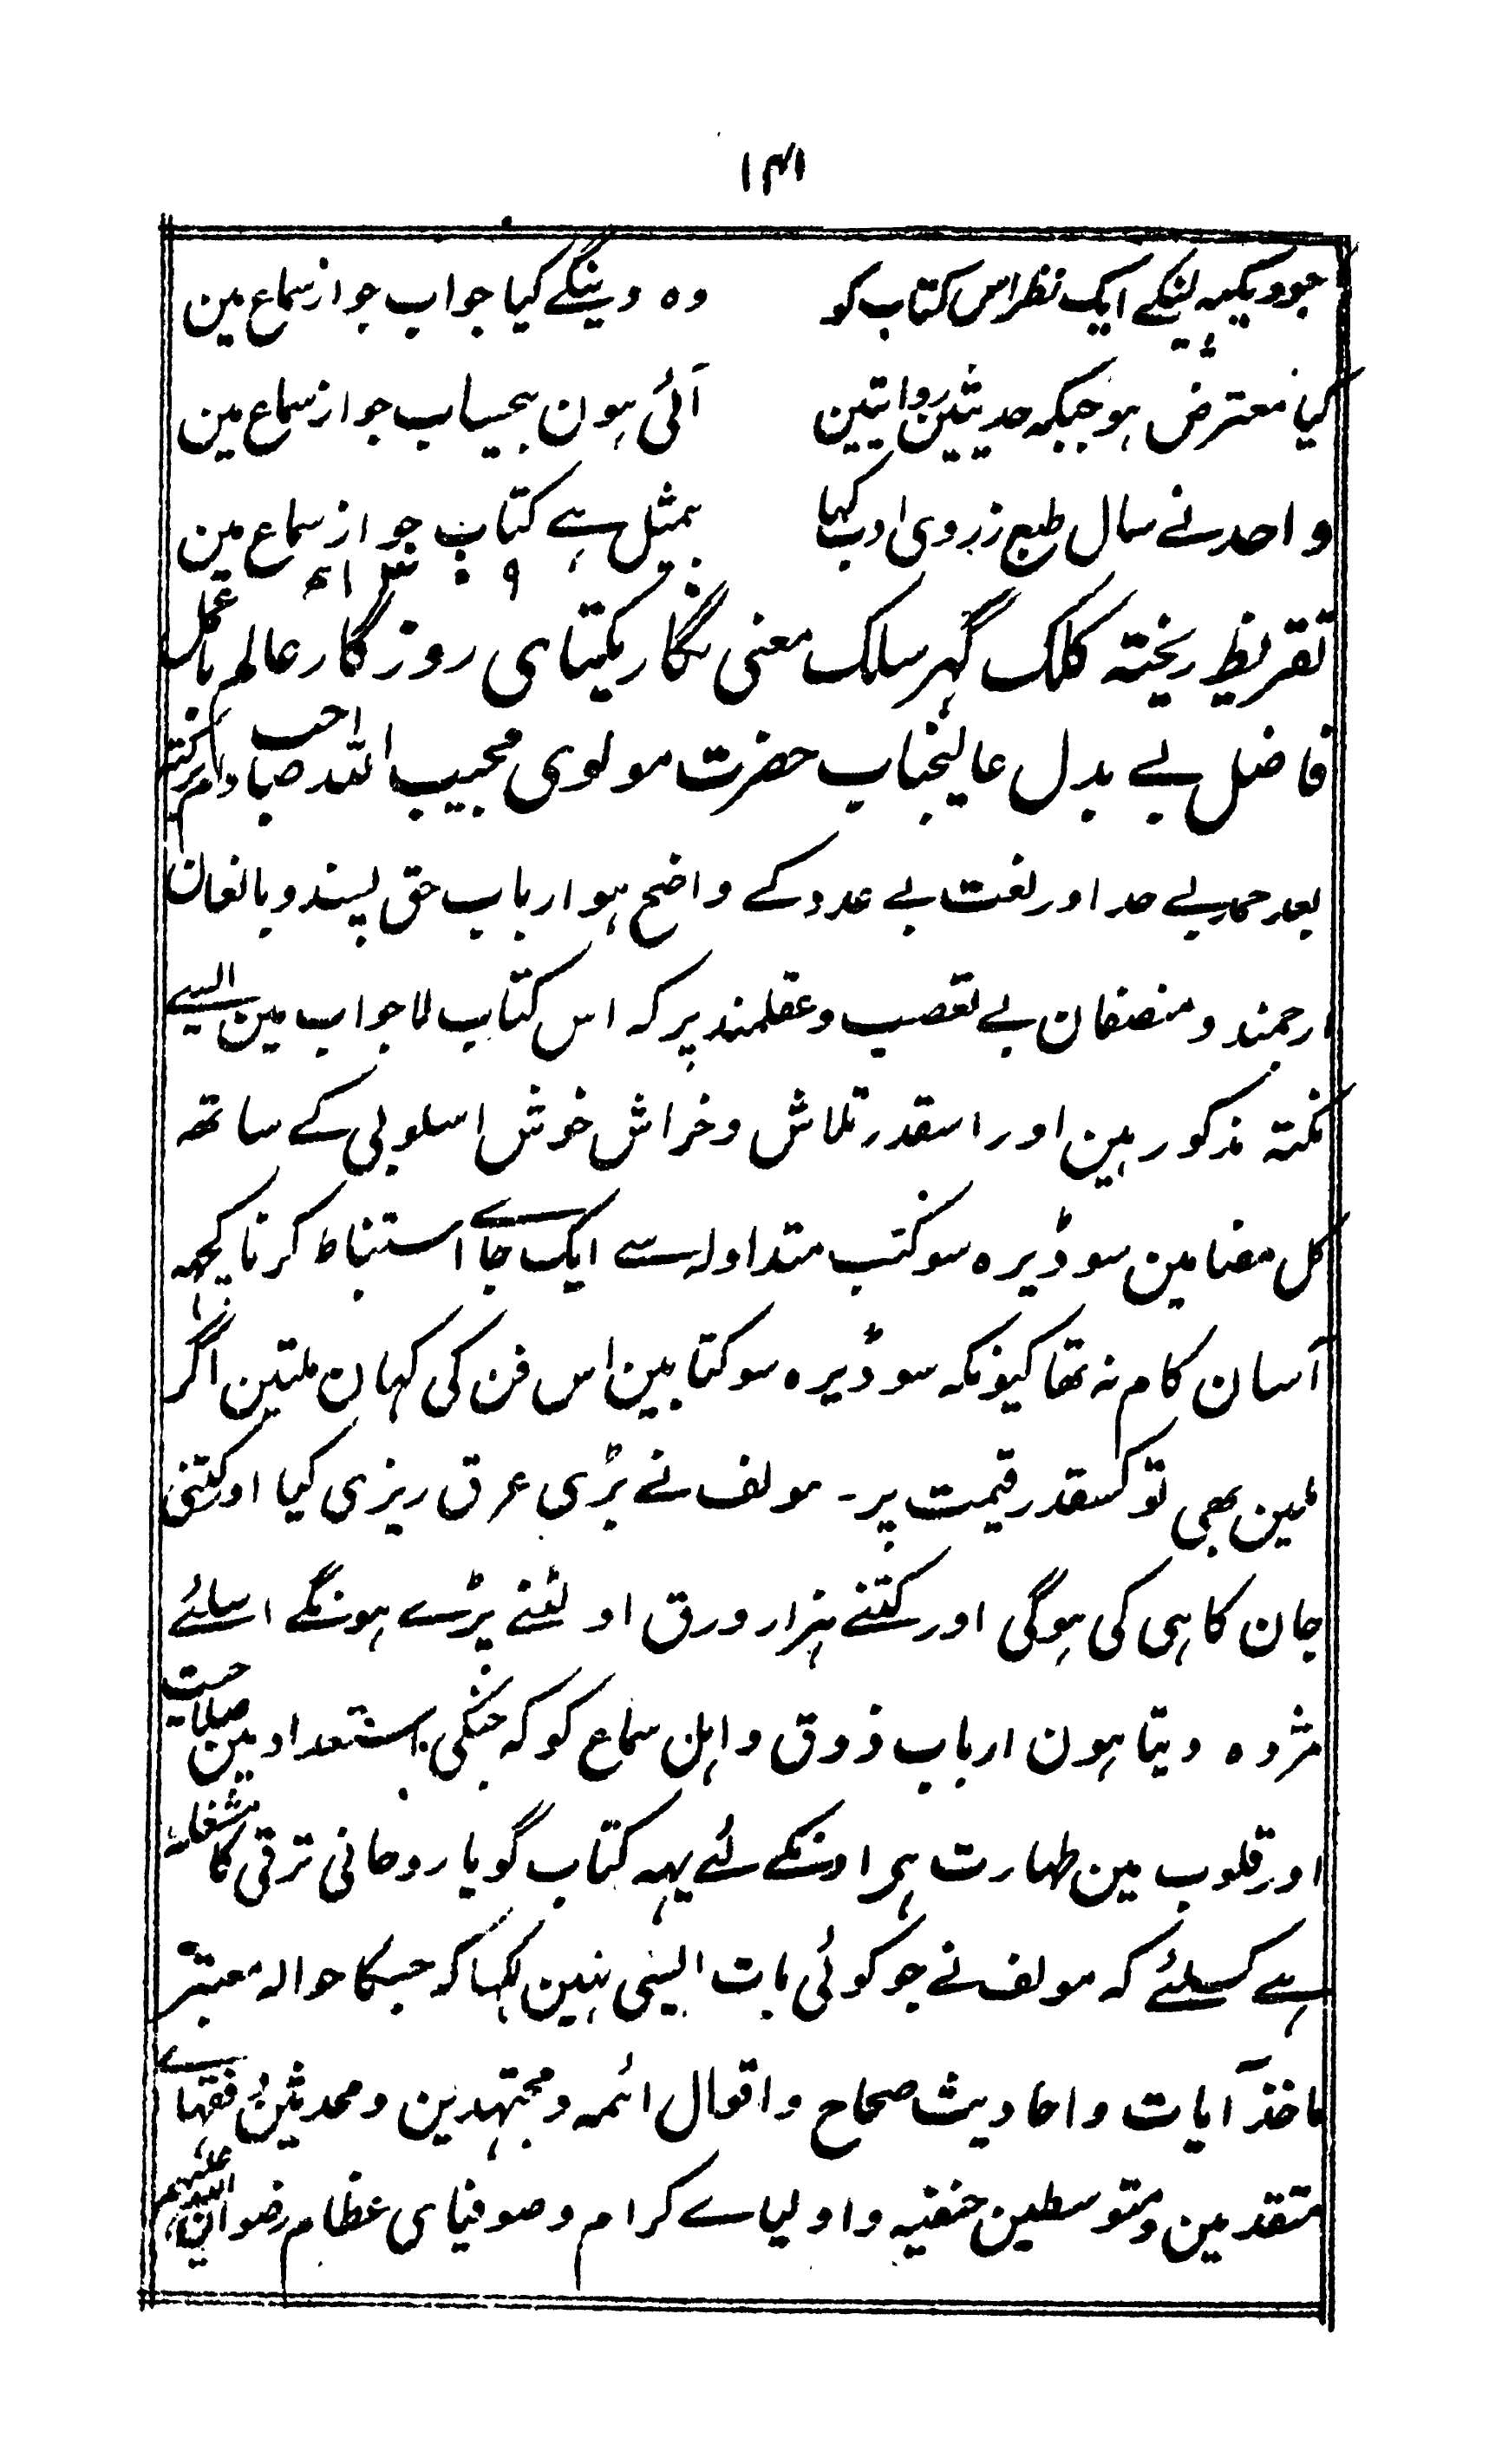 ۱۴۱
جو دیکہہ لینگے ایک نظر اس کتاب کو وہ دینگے کیا جواب جواز سماع مین
کیا معترض ہو جبکہ حدیثین روایتین آئی ہون بیحساب جواز سماع مین
واحد نے سال طبع ز روی ادب کہا بیمثل ہے کتاب جواز سماع مین
۱۳۰۹
تقریظ ریختہ کلک گہر سلک معنی نگار یکتای روزگار عالم باعمل
فاضل بے بدل عالیجناب حضرت مولوی محبیب اللہ صاحب دام برکتہ
بعد حمد بے حد اور نعت بے عدد کے واضح ہو ارباب حق پسند و بالغان
ارجمند و منصفان بے تعصب و عقلمند پر کہ اس کتاب لاجواب مین ایسے
نکتہ مذکور ہین اور اسقدر تلاش و خراش خوش اسلوبی کے ساتھ
کل مضامین سو ڈیرہ سو کتب متداولہ سے ایک جاے استنباط کرنا کچہہ
آسان کام نہ تھا کیونکہ سو ڈیرہ سو کتابین اس فن کی کہان ملتین اگر
ملین بھی تو کسقدر قیمت پر ۔ مولف نے بڑی عرق ریزی کیا اور کتنی
جان کاہی کی ہوگی اور کتنے ہزار ورق اولٹنے پڑے ہونگے اسلئے
مژدہ دیتا ہون ارباب ذوق و اہل سماع کو کہ جنکی استعداد مین صلاحیت
اور قلوب مین طہارت ہی اونکے لئے یہہ کتاب گویا روحانی ترقی کا مشغلہ
ہے کسلئے کہ مولف نے جو کوئی بات ایسی نہین لکہا کہ جسکا حوالہ معتبر
ماخذ آیات و احادیث صحاح و اقوال ائمہ و مجتہدین و محدثین و فقہاے
متقدمین و متوسطین حنفیہ و اولیاے کرام و صوفیای عظام رضوان اللہ علیہم